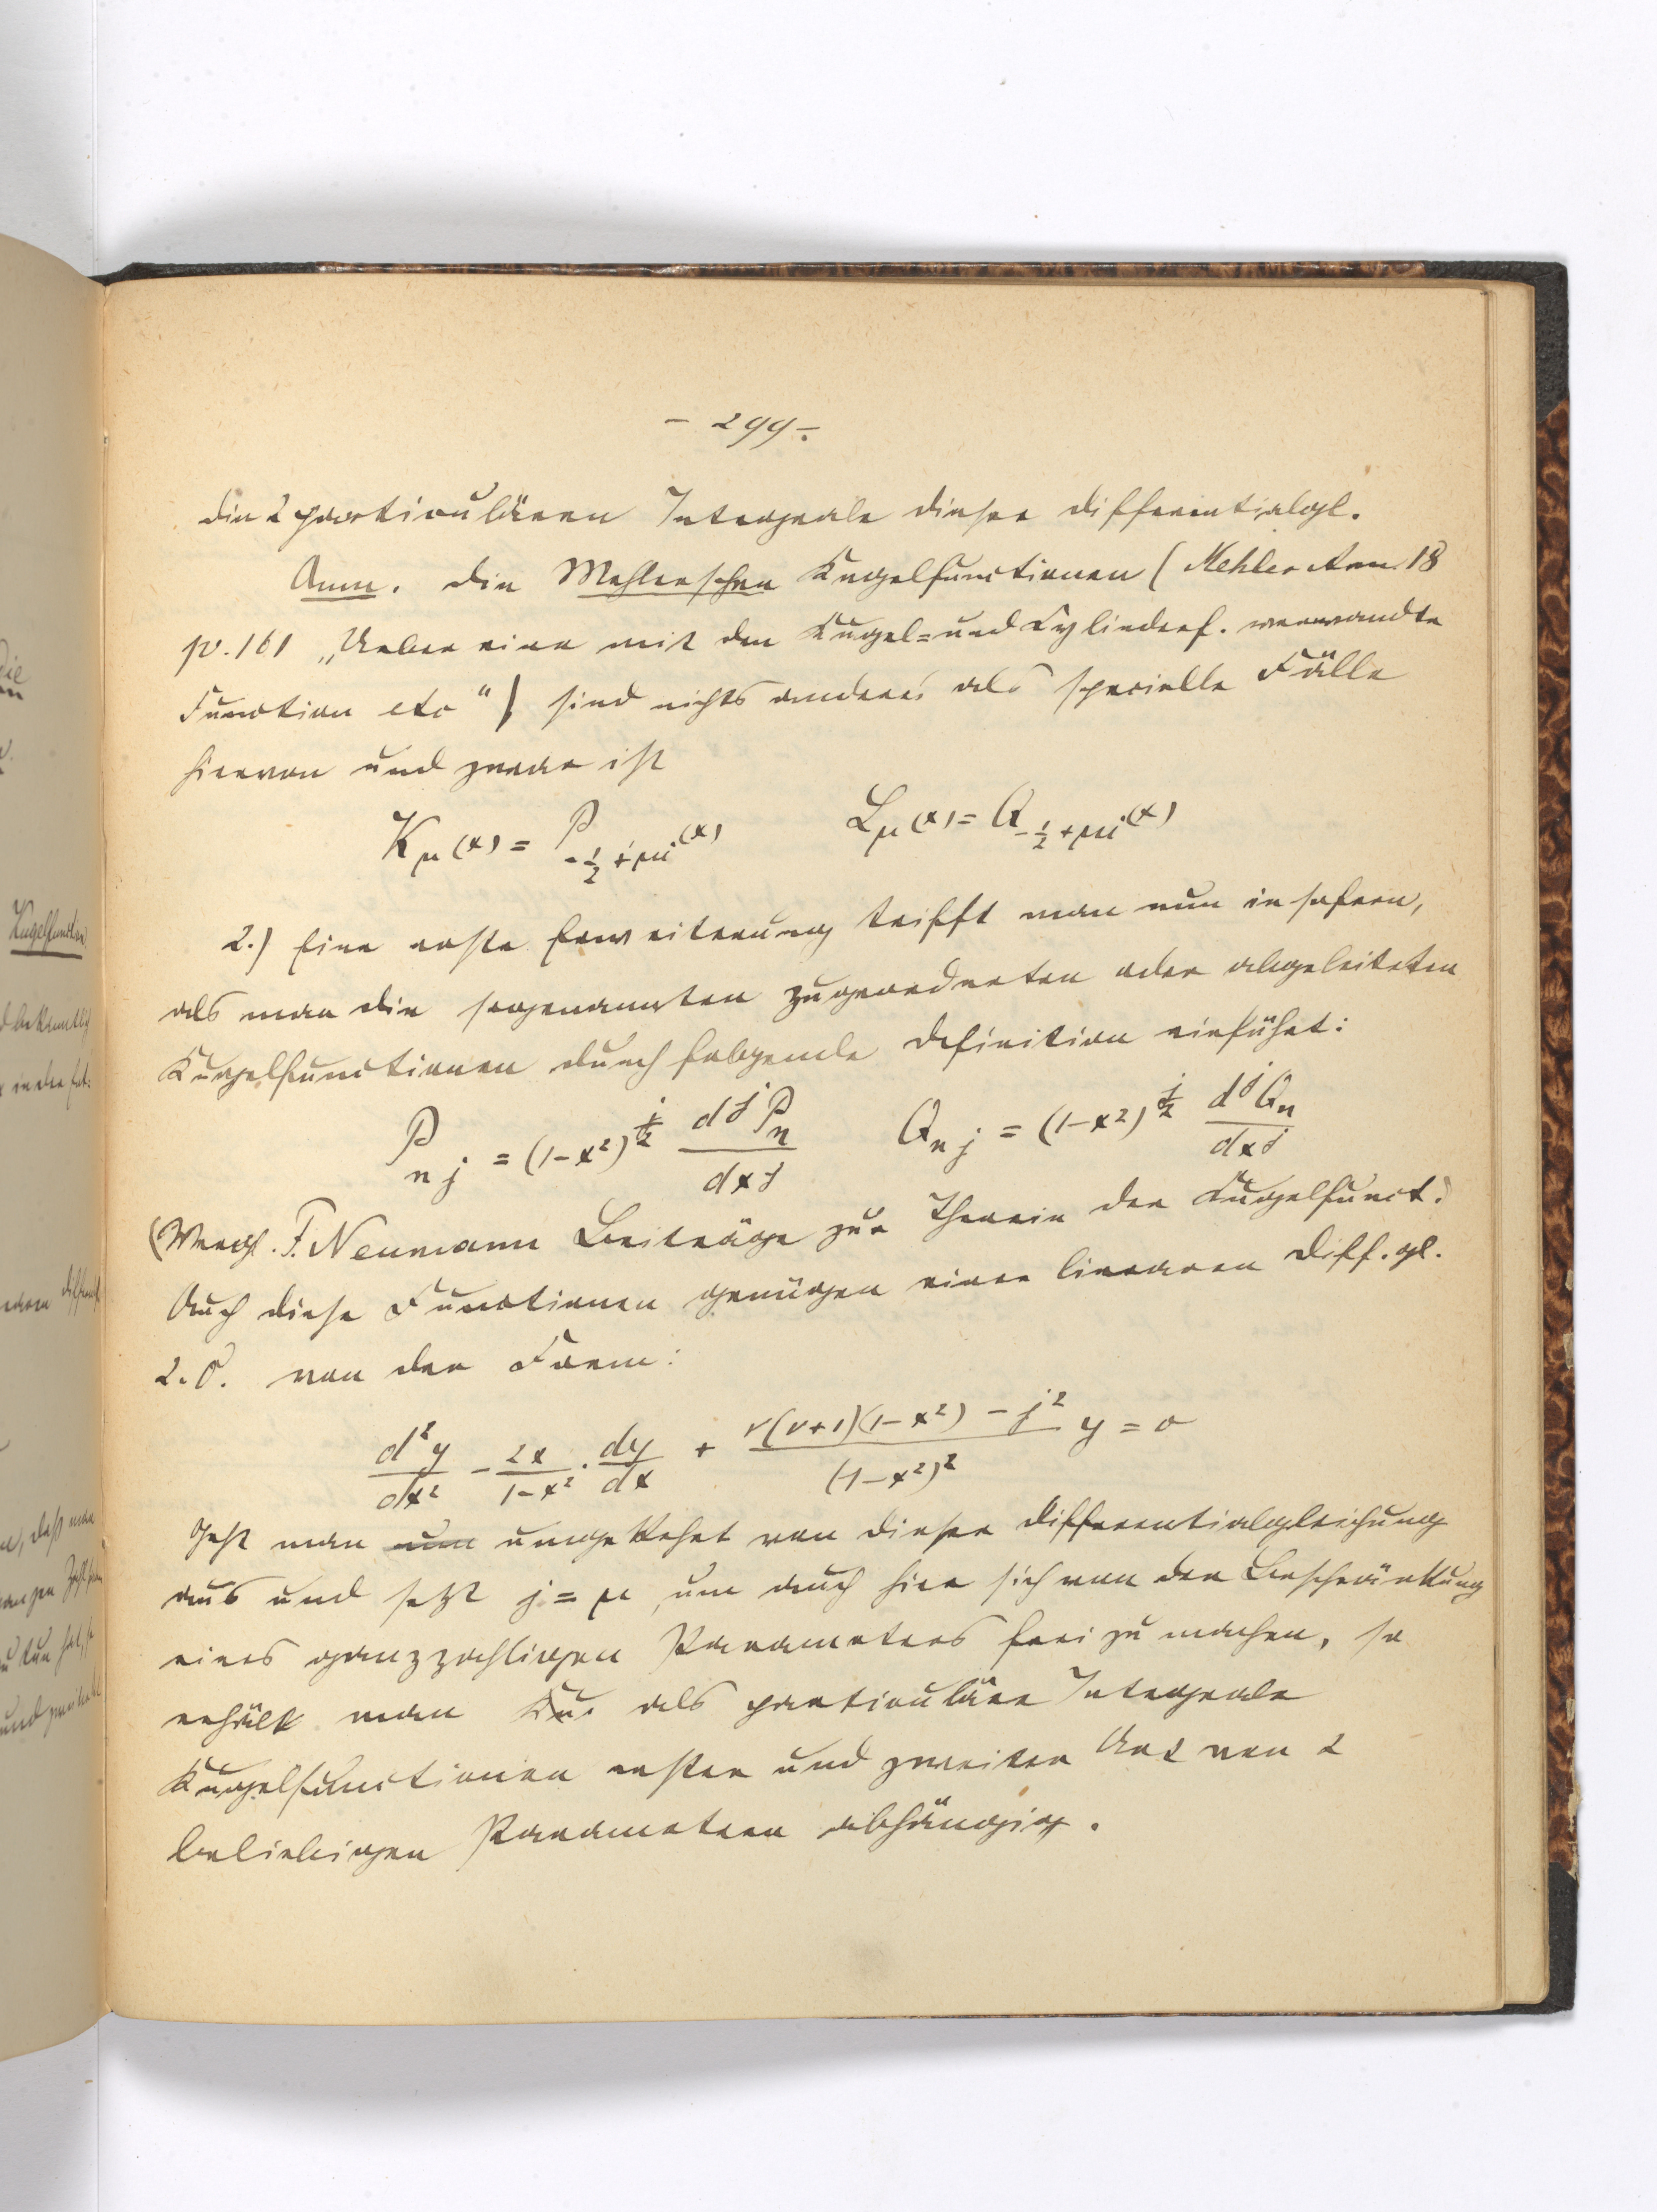 - 299 -.
die 2 particulären Integrale dieser Differentialgl.
Anm. Die Mehlerschen Kugelfunctionen (Mehler Ann. 18
p. 161 „Ueber eine mit den Kugel= und Cylinderf. verwandte
Function etc“) sind nichts anderes als specielle Fälle
hiervon und zwar ist
K_μ(x) = P_{-1/2+μi}(x)   L_μ(x) = Q_{-1/2+μi}(x)
2.) Eine erste Erweiterung trifft man nun insofern,
als man die sogenannten zugeordneten oder abgeleiteten
Kugelfunctionen durch folgende Definition einführt:
P_{nj} = (1-x²)^{j/2} d^jP_n/dx^j   Q_{nj} = (1-x²)^{j/2} d^jQ_n/dx^j
(Vergl. F. Neumann Beiträge zur Theorie der Kugelfunct.)
Auch diese Functionen genügen einer linearen Diff. gl.
2. O. von der Form:
d²y/dx² - 2x/(1-x²) · dy/dx + (ν(ν+1)(1-x²) - j²)/(1-x²)² y = 0
Geht man nun umgekehrt von dieser Differentialgleichung
aus und setzt j = μ, um auch hier sich von der Beschränkung
eines ganzzahligen Parameters frei zu machen, so
erhält man als particuläre Integrale
Kugelfunctionen erster und zweiter Art von 2
beliebigen Parametern abhängig.